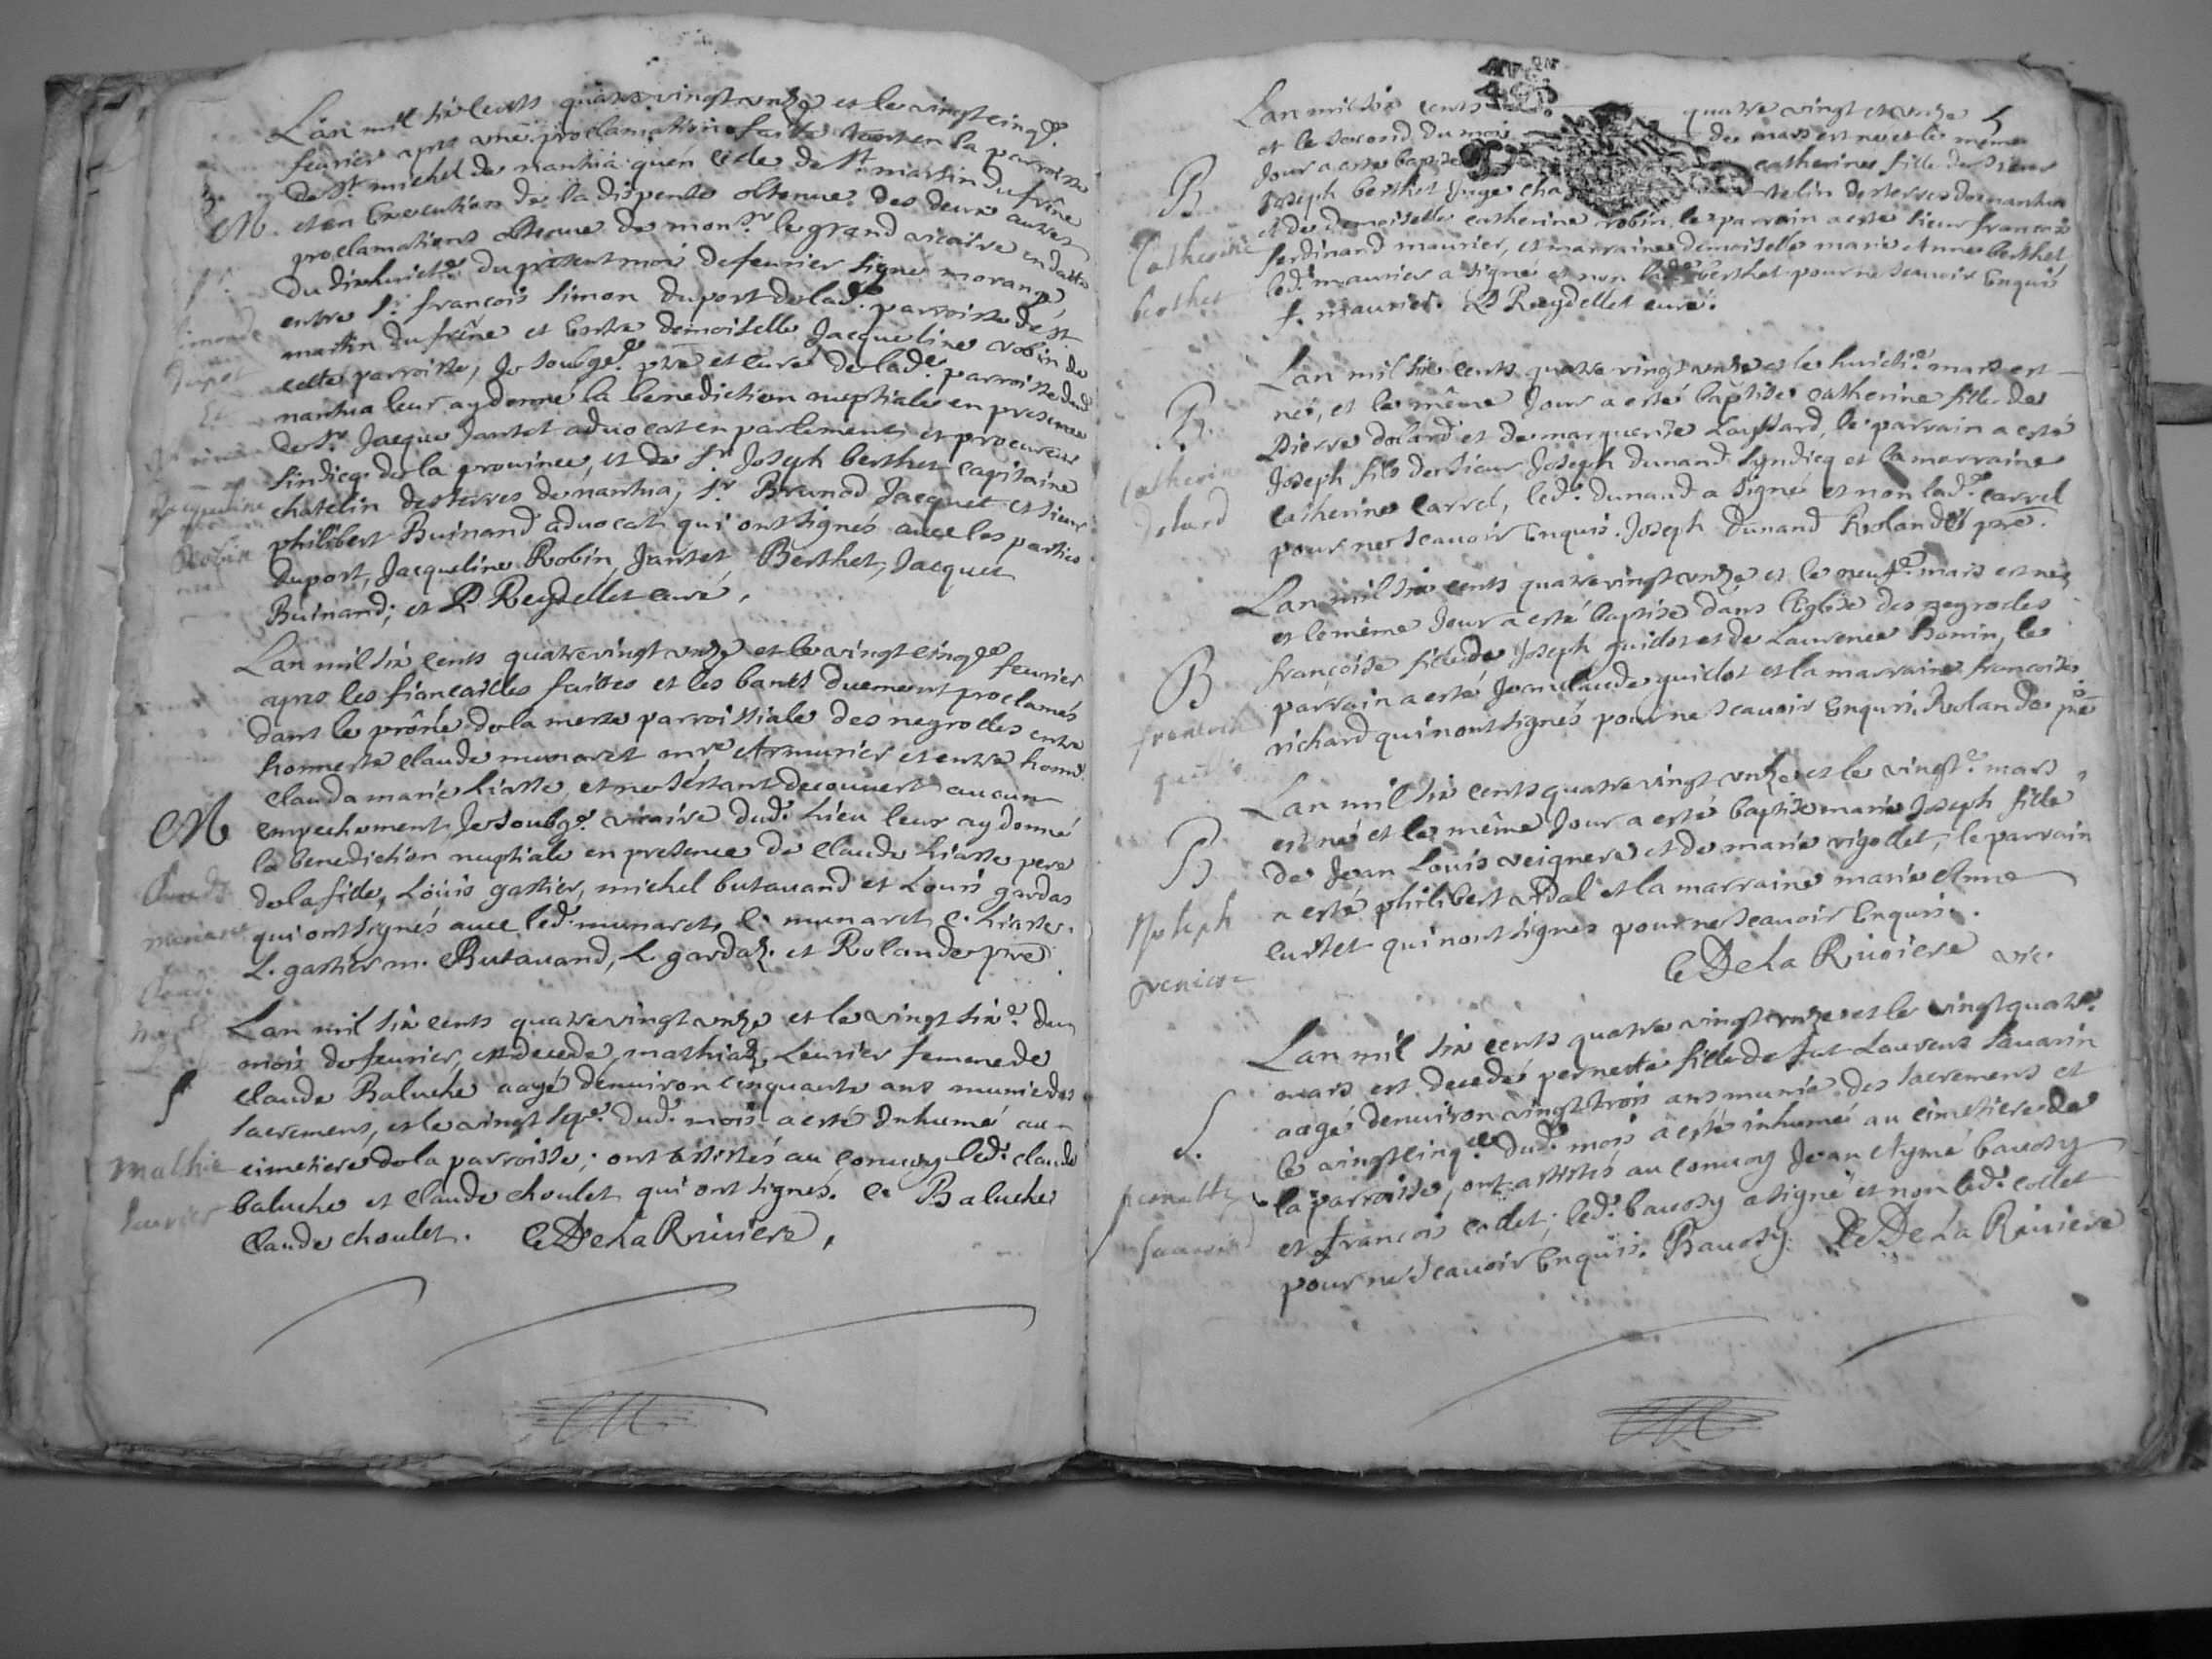 Lan mil six cents quatre vingt unze et le vingt cinqe.
feurier apres une proclamation faitte tant en la parroisse
de St michel de nantua quen celle de St martin du frêne
M. et en Execution de la dispense obtenue des deux autres
proclamations obtenue de monsr. le grand vicaire en datte
du dixhuicte. du present moi de feurier signé morange
entre Sr. françois Simon duport de lade. parroisse de St
martin du frêne et Entre demoiselle Jacqueline robin de
cette parroisse, Je soubge. ptre et curé de lade parroisse dud
nantua leur ay donné la benediction nuptiale en presence
de Sr. Jacque Jantet aduocat en parlement et procureur
sindicq de la prouince, et de Sr Joseph berthet capitaine
chatelin des terres de nantua, Sr Brunod Jacquet et sieur
philibert Buinand aduocat qui ont signés auec les parties
duport, Jacqueline Robin, Jantet, Berthet, Jacquet
Buinand; et P Reydellet curé.
duport
Et
Jacqueline
Robin
Lan mil six cents quatre vingt unze et le vingt cinqe feurier
apres les fiancailles faittes et les bancs duement proclamés
dans le prône de la messe parroissiale des neyrolles entre
honneste claude munaret mre Armurier et entre honne.
clauda marie liaste et ne sestant decouuert aucun
M empechement Je soubge. vicaire dud. Lieu leur ay donné
la benediction nuptiale en presence de claude liaste pere
de la fille, Loüis gastier, michel butauand et Louis gardas
qui ont signés auec led. munaret, c. munaret, c. liaste.
L. gastier m. Butauand, L. gardaz. et Rolande ptre
Claude
munaret
Lan mil six cents quatre vingt unze et le vingt sixe. du
mois de feurier, est decede mathiaz Leurier femme de
S claude Baluche aagé denuiron cinquante ans munie des
sacremens, et le vingt sepe. dud. mois a esté Inhumé au
cimetiere de la parroisse; ont assistés au conuoy led. claude
baluche et claude choulet qui ont signés. C. Baluche
claude choulet. C DeLaRiuiere,
mathie
Leurier
Lan mil six cents quatre vingt et unze
et le second du mois de mars est née et le même
Jour a esté baptize catherine fille de sieur
B Joseph berthet Juge cha telin des terres de nantua
et de demoiselle catherine robin, le parrain a esté sieur françois
ferdinand maurier, et marraine demoiselle marie Anne berthet
led. maurier a signé et non lade berthet pour ne scauoir Enquis
f. maurier. P Reydellet curé.
Catherine
berthet
Lan mil six cents quatre vingt unze et le huictie. mars est
B. né, et le même Jour a esté baptisé catherine fille de
Pierre dolard et de marguerite Loissard, le parrain a esté
Joseph fils de sieur Joseph dunand Syndicq et la marraine
catherine carrel, led. dunand a signé et non lad. carrel
pour ne scauoir Enquis. Joseph dunand Rolande ptre.
Catherine
dolard
Lan mil six cents quatre vingt unze et le neufe. mars est né,
et le même Jour a esté baptisé dans lEglise des neyroles
B françoise fille de Joseph guidot et de Laurence bonin, le
parrain a esté Jean claude guidot et la marraine francoise
richard qui nont signés pour ne scauoir Enquri. Rolande ptre
francoise
Lan mil six cents quatre vingt unze et le vingte. mars
est né et le même Jour a esté baptisé marie Joseph fille
B de Jean Louis veignere et de marie rigollet, le parrain
a esté philibert Vidal et la marraine marie Anne
curtet qui nont signés pour ne scauoir Enquis.
C DeLa Riuiere vic.
Joseph
Lan mil six cents quatre vingt unze et le vingt quatre.
mars est decedé pernette fille de fut Laurens Sauarin
aagé denuiron vingt trois ans munie des sacremens et
S. le vingt cinqe. dud. mois a esté inhumé au cimetiere de
la parroisse, ont assistés au conuoy Jean Aymé baudsy
et françois collet, led. baudsy a signé et non led. collet
pour ne scauoir Enquis. Baudsy. C DeLa Riuiere
pernette
sauarin